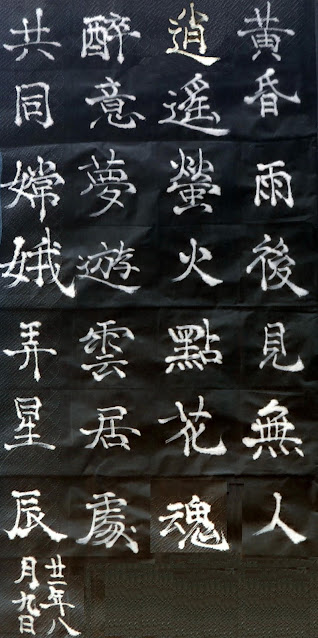 黃昏雨後見無人
逍遙螢火點花魂
醉意夢遊雲居處
共同嫦娥弄星辰
廿二年八
月九日